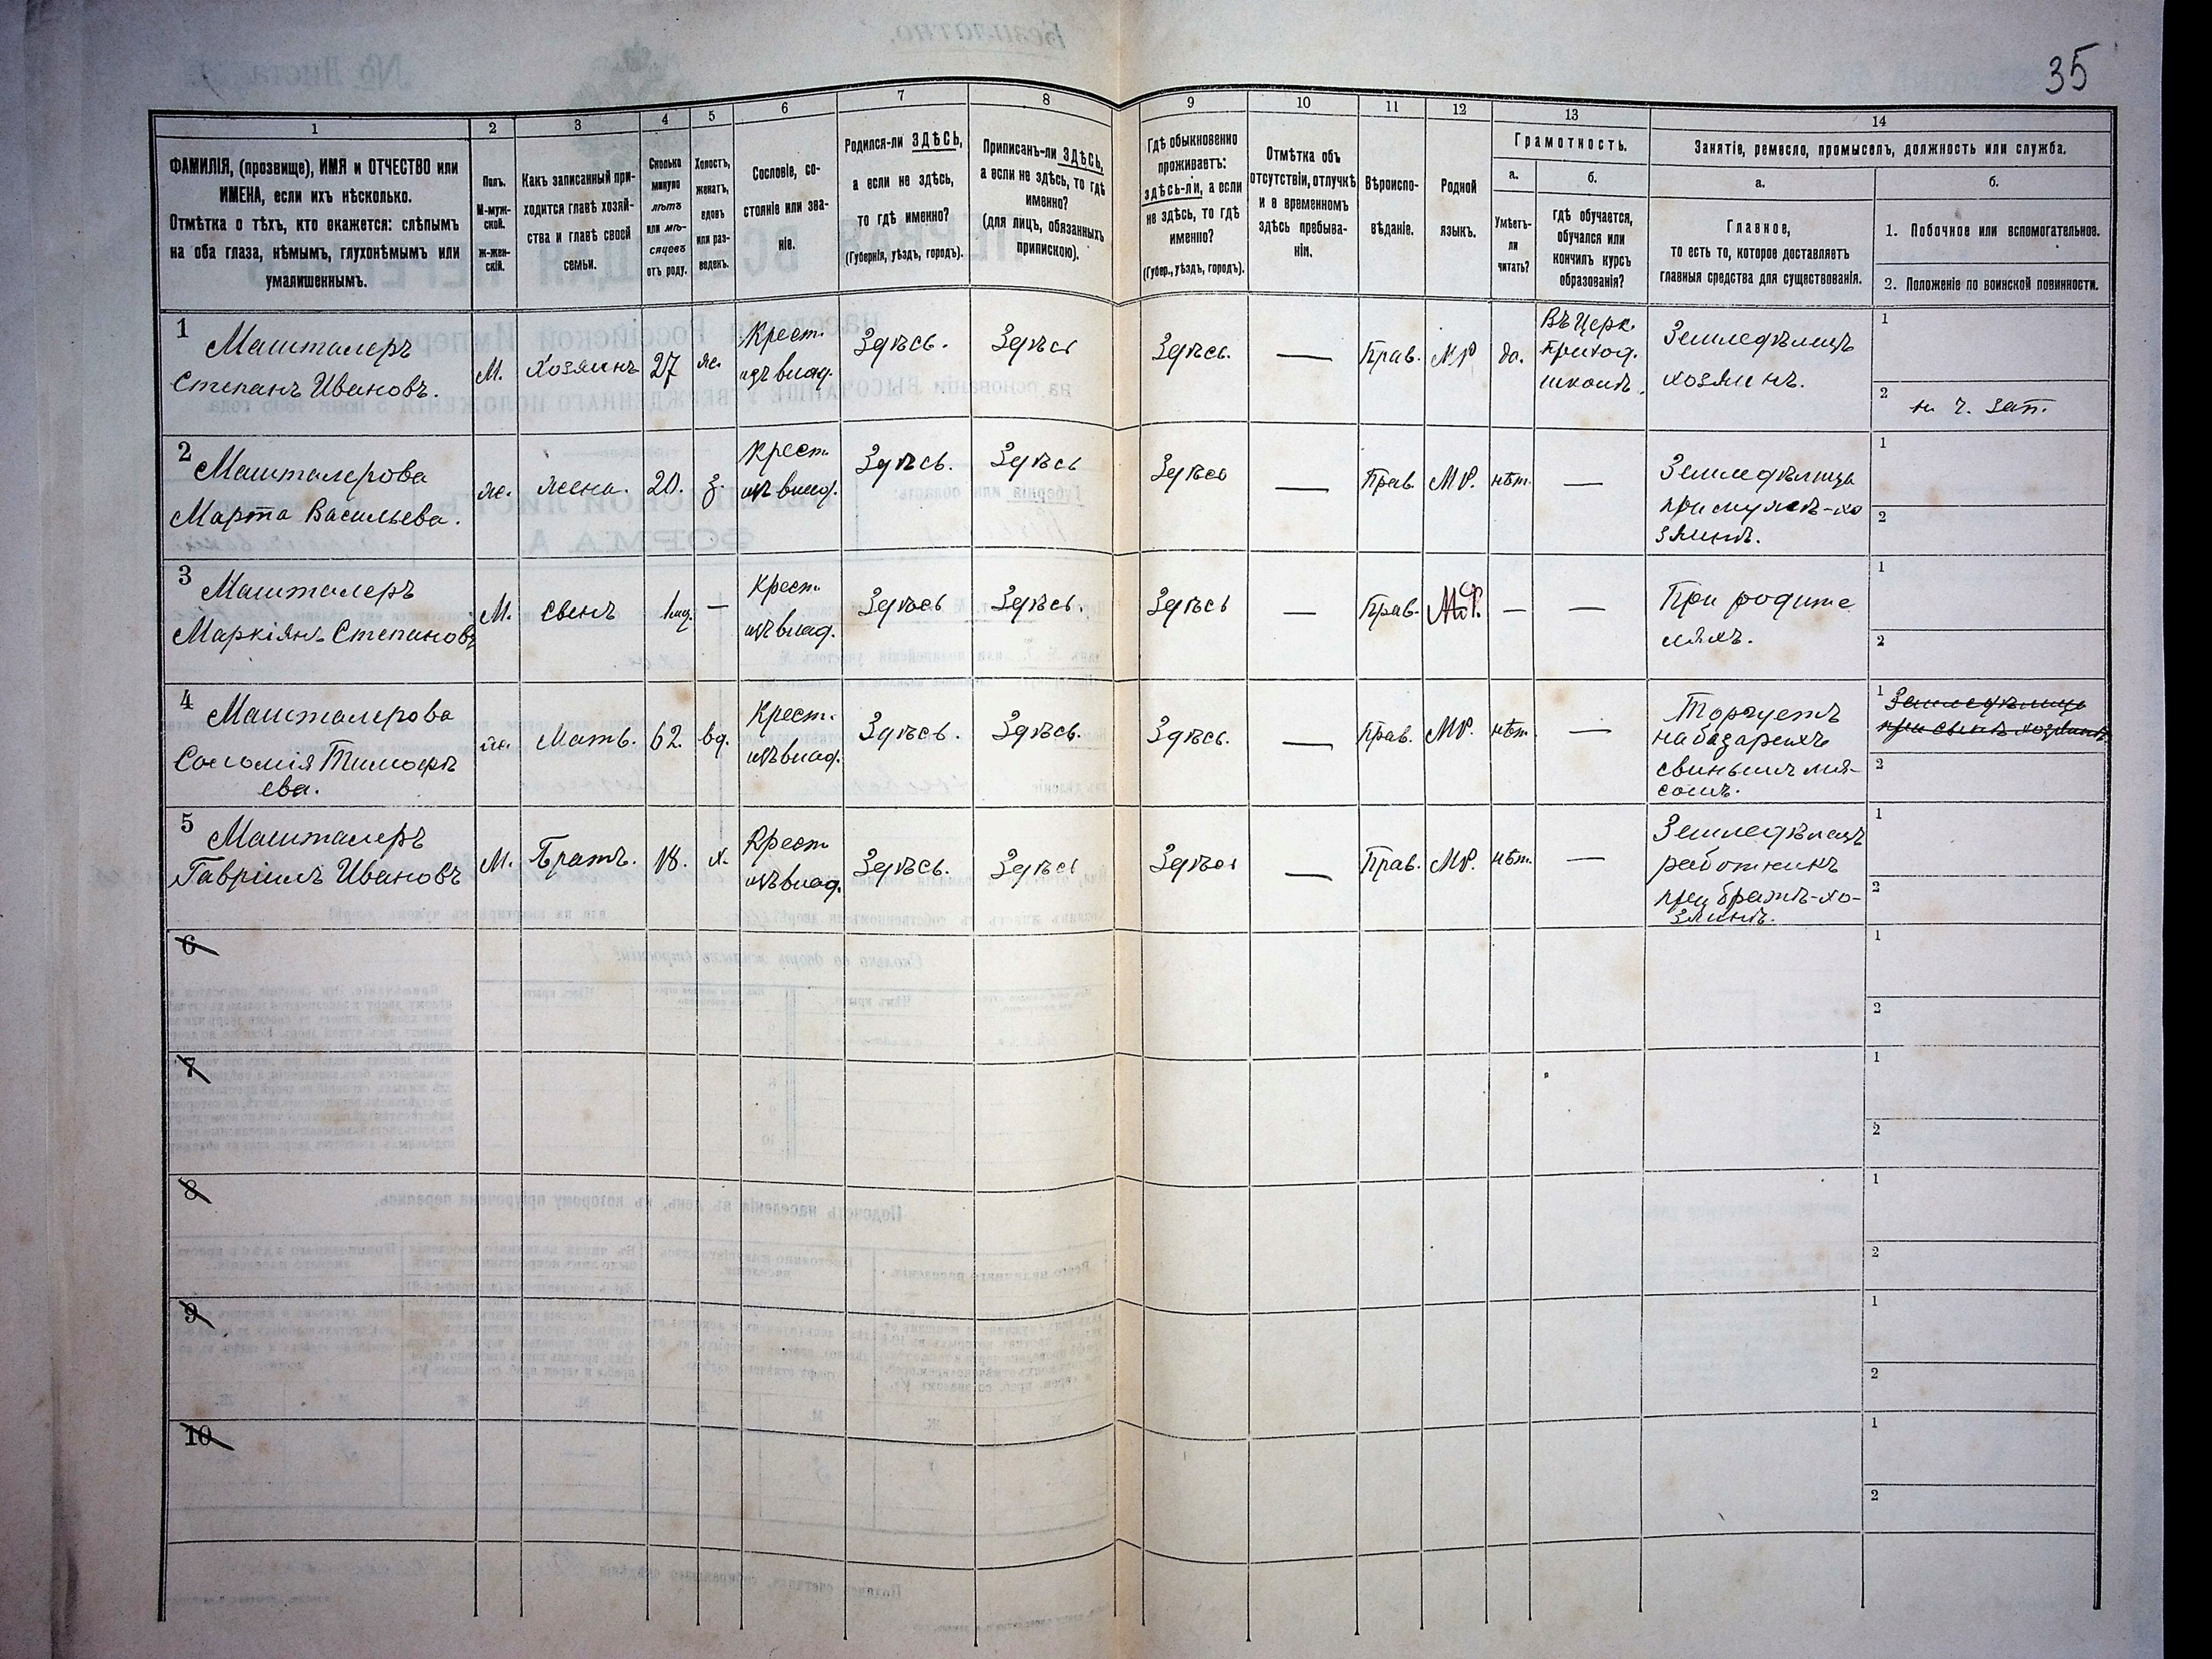 35
1
2
3
4
5
6
7
8
9
10
11
12
13
14
ФАМИЛІЯ, (прозвище), ИМЯ и ОТЧЕСТВО или
ИМЕНА, если ихъ нѣсколько.
Отмѣтка о тѣхъ, кто окажется: слѣпымъ
на оба глаза, нѣмымъ, глухонѣмымъ или
умалишеннымъ.
Полъ.
М-муж-
ской.
Ж-жен-
скій.
Какъ записанный при-
ходится главѣ хозяй-
ства и главѣ своей
семьи.
Сколько
минуло
лѣтъ
или мѣ-
сяцевъ
отъ роду.
Холостъ,
женатъ,
вдовъ
или раз-
веденъ.
Сословіе, со-
стояніе или зва-
ніе.
Родился-ли ЗДѢСЬ,
а если не здѣсь,
то гдѣ именно?
(Губернія, уѣздъ, городъ).
Приписанъ-ли ЗДѢСЬ,
а если не здѣсь, то гдѣ
именно?
(для лицъ, обязанныхъ
припискою).
Гдѣ обыкновенно
проживаетъ:
здѣсь-ли, а если
не здѣсь, то гдѣ
именно?
(Губер., уѣздъ, городъ).
Отмѣтка объ
отсутствіи, отлучкѣ
и о временномъ
здѣсь пребыва-
ніи.
Вѣроиспо-
вѣданіе.
Родной
языкъ.
Грамотность.
а.
Умѣетъ-
ли
читать?
б.
гдѣ обучается,
обучался или
кончилъ курсъ
образованія?
Занятіе, ремесло, промыселъ, должность или служба.
а.
Главное,
то есть то, которое доставляетъ
главныя средства для существованія.
б.
1. Побочное или вспомогательное.
2. Положеніе по воинской повинности.
1
Машталеръ
Степанъ Ивановъ.
М.
Хозяинъ
27
же.
Крест.
изъ влад.
Здѣсь.
Здѣсь
Здѣсь.
—
Прав.
МР
да.
Въ Церк.
Приход.
школѣ.
Земледѣлецъ
хозяинъ.
1
2
зап.
2
Машталерова
Марта Васильева.
же.
жена.
20.
з.
Крест.
изъ влад.
Здѣсь.
Здѣсь
Здѣсь
—
Прав.
МР.
нѣт.
—
Земледѣлица
при мужѣ-хо
зяинѣ.
1
2
3
Машталеръ
Маркіянъ Степановъ
М.
сынъ
—
Крест.
изъ влад.
Здѣсь
Здѣсь.
Здѣсь
—
Прав.
МР.
—
—
При родите
ляхъ.
1
2
4
Машталерова
Соломія Тимофѣ
ева.
же.
Мать.
62.
вд.
Крест.
изъ влад.
Здѣсь.
Здѣсь.
Здѣсь.
—
Прав.
МР.
нѣт.
—
Торгуетъ
на базарахъ
свинымъ мя-
сомъ.
1
Земледѣлица
при сынѣ хозяинѣ.
2
5
Машталеръ
Гавріилъ Ивановъ
М.
Братъ.
18.
х.
Крест
изъ влад.
Здѣсь.
Здѣсь
Здѣсь
—
Прав.
МР.
нѣт.
—
Земледѣлецъ
работникъ
при братѣ-хо-
зяинѣ.
1
2
6
1
2
7
1
2
8
1
2
9
1
2
10
1
2